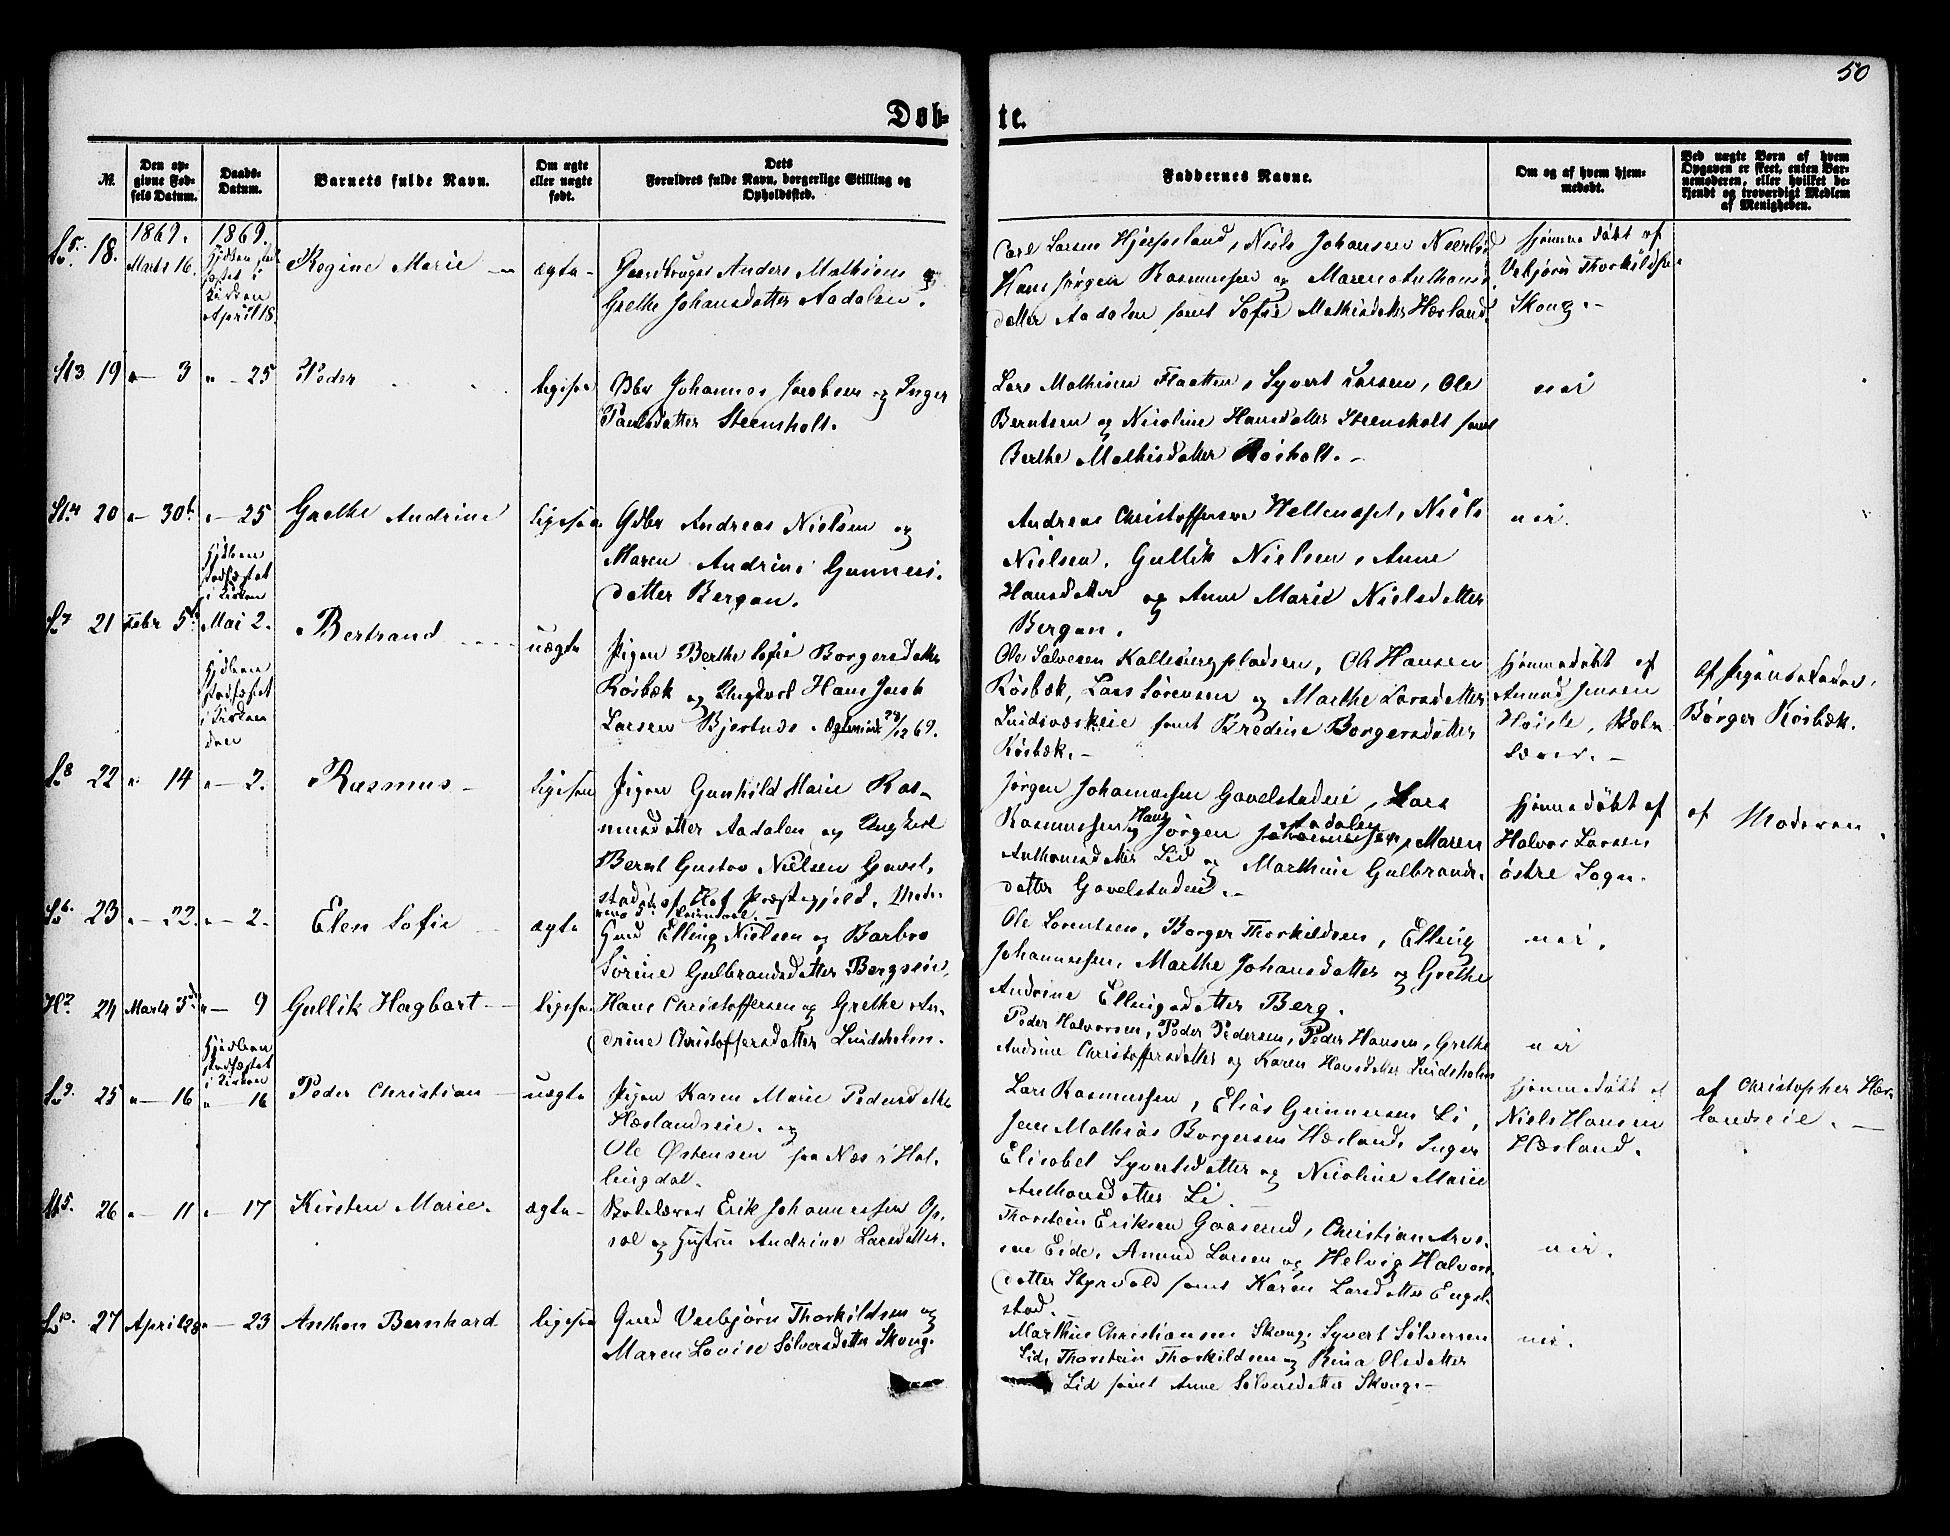 50
Døb-
te.
№.
Den opgivne Fødsels Datum.
Daabs-Datum.
Barnets fulde Navn.
Om ægte eller uægte født.
Dets Forældres fulde Navn, borgerlige Stilling og Opholdssted.
Faddernes Navne.
Om og af hvem hjemmedøbt.
Ved uægte Børn af hvem Opgaven er skeet, enten Barnemoderen, eller hvilket bekjendt og troværdigt Medlem af Menigheden.
18. 1869. Marts 16.
1869.
i Kirken
April 18.
Regine Marie
ægte
Gaardbruger Anders Mathisen og
Grethe Johansdatter Aadalen.
Carl Larsen Hjepsland, Niels Johansen
Hans Jørgen Rasmussen og Maren Anthons
datter Aadalen samt Sofie Mathisdatter Hærland.
hjemmedøbt af
Vebjørn Thorkildsen
Skoug.
19 " 3 " 25 Peder
ligesaa
Gbr Johannes Jacobsen og Inger
Paulsdatter Steensholt.
Lars Mathisen Flaatten, Syvert Larsen, Ole
Berntsen og Nicoline Hansdatter Steensholt samt
Berthe Mathisdatter Røsholt.
nei
20 " 30te " 25 Grethe Andrine
ligesaa
Gdbr Andreas Nielsen og
Maren Andrine Gunners-
datter Bergan.
Andreas Christoffersen, Niels
Nielsen, Gullik Nielsen, Anne
Hansdatter og Anne Marie Nielsdatter
Bergan.
nei.
Hjdben
stadfæstet
i Kirken
21 Febr 5te Mai 2. Bertrand
uægte
Pigen Berthe Sofie Borgersdatter
Røsbæk og Ungkarl Hans Jacob
Larsen Bjerknes. Ægteviet 28/12 69.
Ole Salvesen Kallebergpladsen, Ole Hansen
Røsbæk, Lars Sørensen og Marthe Larsdatter
samt Bredine Borgersdatter
Røsbæk.
hjemmedøbt af
Amund Jensen
af Pigens Fader,
Børger Røsbæk.
Hjdben
stadfæstet
i Kirken
den
22 " 14 " 2. Rasmus
ligesaa
Pigen Gunhild Marie Ras-
musdatter Aadalen og Ungkarl
Bernt Gustav Nielsen Gavel-
stad af Hof Præstegjeld.
Jørgen Johannessen Gavelstadeie, Lars
Rasmussen og Hans Jørgen Aadalen, Maren
Anthonsdatter Lid og Marthine Gulbrands-
datter Gavelstadeie.
hjemmedøbt af
Halvor Larsen
østre Sogn.
af Moderen.
23 " 22. " 2. Elen Sofie
ægte
Gaard Elling Nielsen og Barbro
Sørine Gulbrandsdatter Bergseie.
Ole Lorentsen, Borger Thorkildsen, Elling
Johannessen, Marthe Johansdatter og Grethe
Andrine Ellingsdatter Berg.
nei.
24 Marts 3die " 9 Gullik Hagbart
ligesaa
Hans Christoffersen og Grethe An-
drine Christoffersdatter Lindsholm.
Peder Halvorsen, Peder Pedersen, Peder Hansen, Grethe
Andrine Christoffersdatter og Karen Hansdatter Lindsholm
nei
Hjdben
stadfæstet
i Kirken
25 " 16 " 16 Peder Christian
uægte
Pigen Karen Marie Pedersdatter
Hærlandseie. og
Ole Østensen fra Næs i Hal-
lingdal.
Lars Rasmussen, Elias Gunnersen Li,
Jens Mathias Borgersen Hærland, Inger
Elisabet Syvertsdatter og Nicoline Marie
Anthonsdatter Li
hjemmedøbt af
Niels Hansen
Hærland.
af Christopher Hær-
landseie.
26 " 11 " 17 Kirsten Marie.
ægte
Erik Johannessen Op-
sal og Hustru Andrine Larsdatter.
Thorstein Eriksen Gaaserud, Christian Arve-
sen Eide, Amund Larsen og Helvig Halvors-
datter Styrvold samt Karen Larsdatter Engel-
stad.
nei.
27 April 28 " 23 Anthon Bernhard
ligesaa
Gaard Vebjørn Thorkildsen og
Maren Lovise Sølversdatter Skoug.
Marthin Christiansen Skoug, Syvert Sølversen
Lid, Thorstein Thorkildsen og Rina Olsdatter
Lid samt Anne Sølversdatter Skoug.
nei.